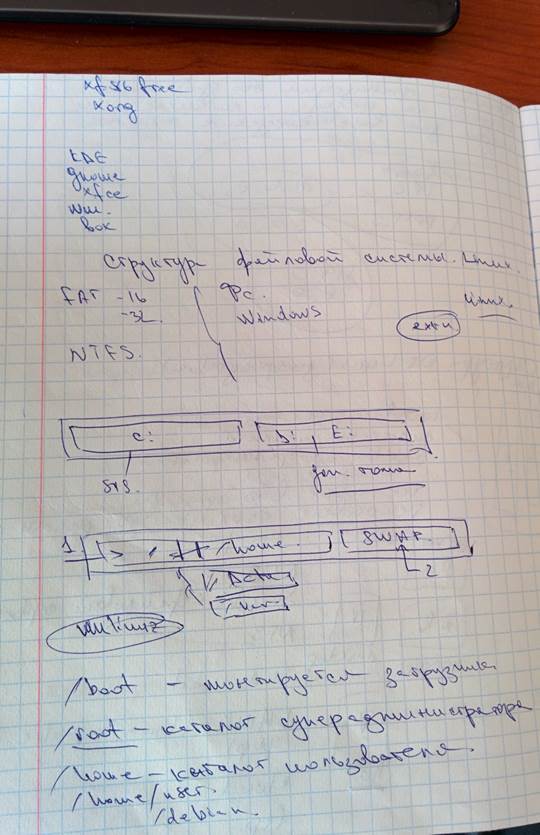 xf86free
xorg
KDE
gnome
xfce
wm.
box
Структура файловой системы. Linux.
FAT -16
-32
NTFS.
Фс.
Windows
Linux.
C:
D: E:
sys.
доп. тома
1
/ /home.
SWAP.
/Data
/var
2
vmlinuz
/boot - монтируется загрузчик
/root - каталог суперадминистратора
/home - каталог пользователя.
/home/user.
/debian.